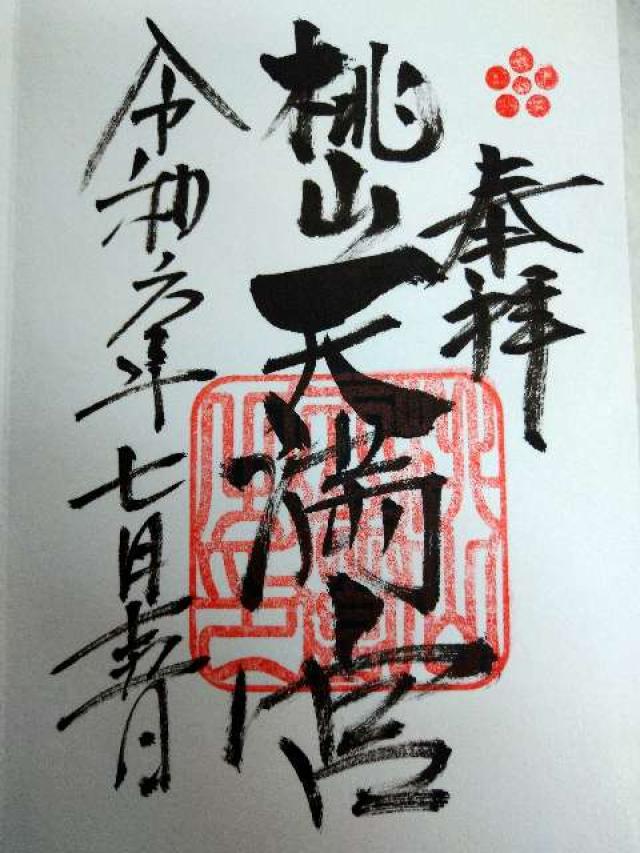 奉拝
桃山天満宮
令和六年七月日